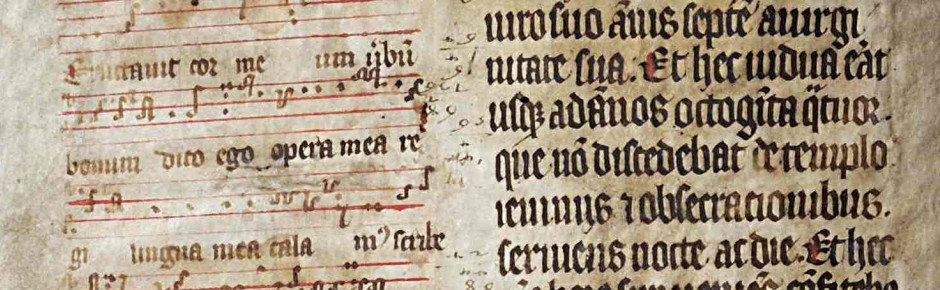 Eructauit cor me um ũbũ
bonum dico ego opera mea re
gi lingua mea cala mꝰ scribe
uiro suo ãnis septẽ a uirgi
nitate sua. Et hec uidua erat
usqꝫ ad ãnos octoginta q̃tuor.
que nõ discedebat de templo
ieiunijs ⁊ obsecracionibus.
seruiens nocte ac die. Et hec